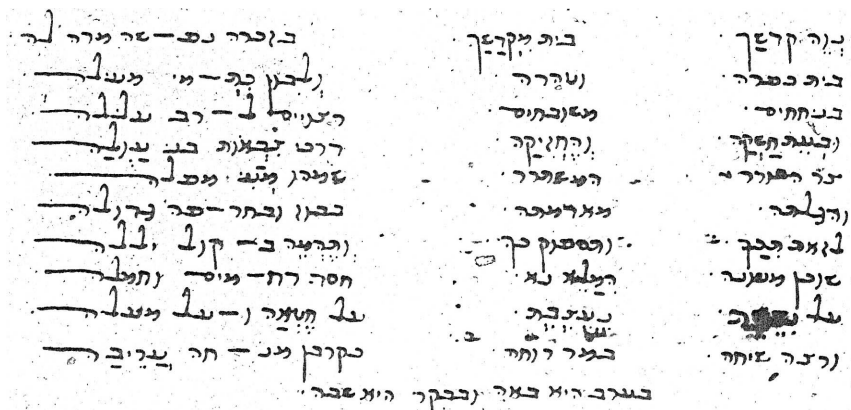 נְוֵה קדשַׁך · בית מִקְדָשַׁך · בזכרה נפ–שה מרה לה
בית כפרה · וטהרה · ולבון כת–מי מעלה
בניחחים · משובחים · רצויים ל–רב עלילה
ובעת חָשְׁקָה · והֶחְזִיקָה · דרכי צבאות בני עַוְלָה
צר השורר · המשתרר · שמהו מני מסלה
והגלתה · מארמנה · בבוז ובחר–פה גדולה
לזאת תבך · ותספוק כף · ותהמה ב–קול יללה
שוכן מעונה · הַמְלֵא נא · חסד רח–מים וחמלה
על · נעצבת · על חטאה ו–על מעלה
ורצה שיחה · במר רוחה · כקרבן מנ–חה עֲרֵיבָה
בערב היא באה ובבקר היא שבה ·